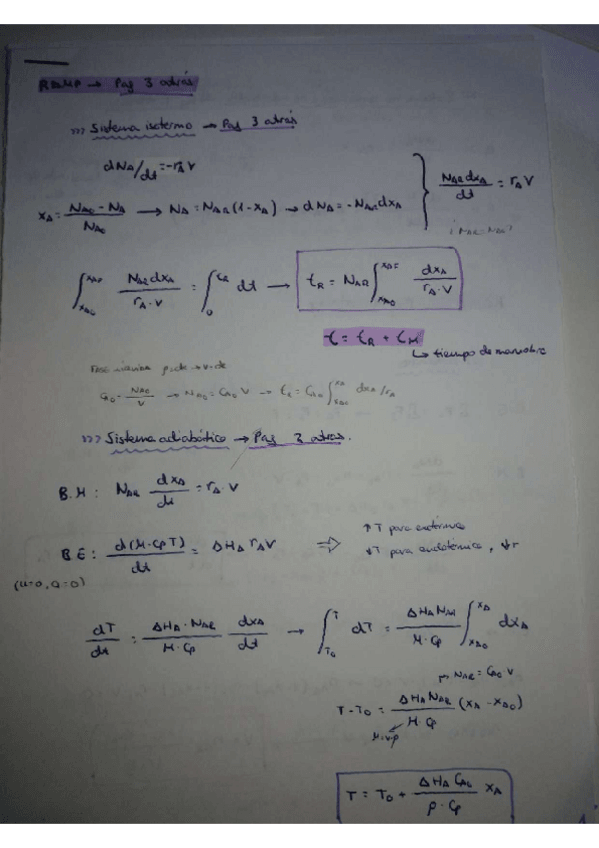 RDMP → Pag 3 atrás
>>> Sistema isotermo → Pag 3 atrás
dNA/dt = -rA V
xA = (NA0 - NA)/NA0 → NA = NAR (1 - xA) → dNA = -NAR dxA } NAR dxA/dt = rA V
¿NAR = NA0?
∫xA0^xAF NAR dxA/(rA · V) = ∫0^tR dt → tR = NAR ∫xA0^xAF dxA/(rA · V)
t = tR + tM
↳ tiempo de maniobra
Fase líquida ρ=cte → V=cte
CA0 = NA0/V → NA0 = CA0 V → tR = CA0 ∫xA0^xA dxA/rA
>>> Sistema adiabático → Pag 3 atras.
B.M: NAR dxA/dt = rA V
BE: d(M·Cp T)/dt = ΔHA rA V ⇒ ↑T para exotérmica
↓T para endotérmica, ↓r
(u=0, Q=0)
dT/dt = ΔHA · NAR/(M · Cp) dxA/dt → ∫T0^T dT = ΔHA NAR/(M · Cp) ∫xA0^xA dxA
NAR = CA0 V
T - T0 = ΔHA NAR/(M · Cp) (xA - xA0)
M=V·ρ
T = T0 + ΔHA CA0/(ρ · Cp) xA